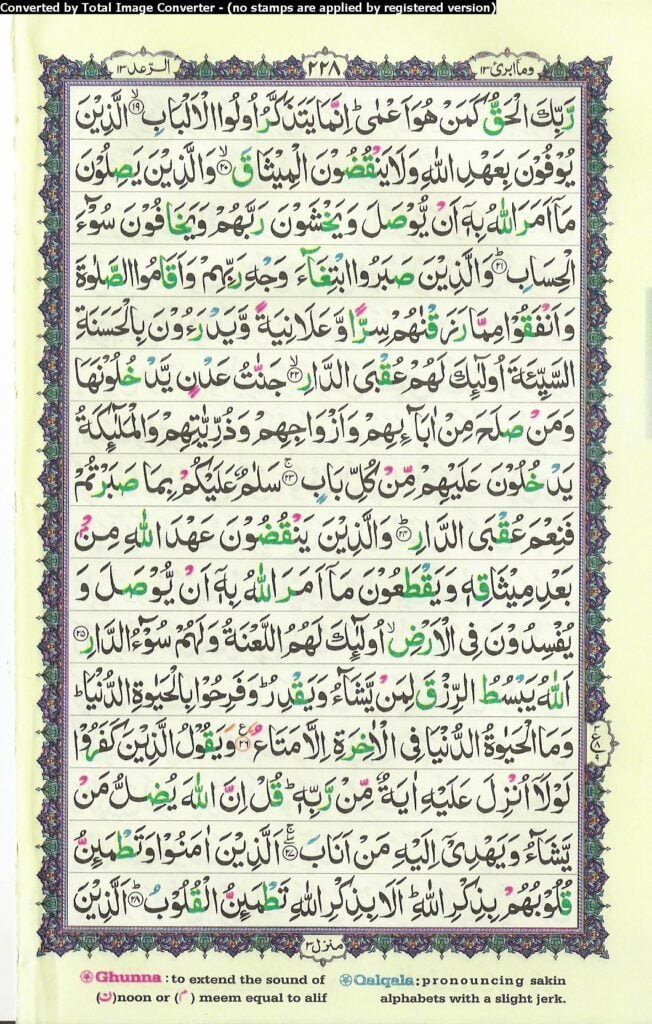 Converted by Total Image Converter - (no stamps are applied by registered version)
وما ابرئ ١٣
٢٢٨
الرعد ١٣
رَّبِّكَ الْحَقُّ كَمَنْ هُوَ اَعْمٰىؕ اِنَّمَا یَتَذَكَّرُ اُولُوا الْاَلْبَابِۙ۝۱۹ الَّذِیْنَ
یُوْفُوْنَ بِعَهْدِ اللّٰهِ وَلَا یَنْقُضُوْنَ الْمِیْثَاقَۙ۝۲۰ وَالَّذِیْنَ یَصِلُوْنَ
مَاۤ اَمَرَ اللّٰهُ بِهٖۤ اَنْ یُّوْصَلَ وَیَخْشَوْنَ رَبَّهُمْ وَیَخَافُوْنَ سُوْٓءَ
الْحِسَابِؕ۝۲۱ وَالَّذِیْنَ صَبَرُوا ابْتِغَآءَ وَجْهِ رَبِّهِمْ وَاَقَامُوا الصَّلٰوةَ
وَاَنْفَقُوْا مِمَّا رَزَقْنٰهُمْ سِرًّا وَّعَلَانِیَةً وَّیَدْرَءُوْنَ بِالْحَسَنَةِ
السَّیِّئَةَ اُولٰٓئِكَ لَهُمْ عُقْبَى الدَّارِۙ۝۲۲ جَنّٰتُ عَدْنٍ یَّدْخُلُوْنَهَا
وَمَنْ صَلَحَ مِنْ اٰبَآئِهِمْ وَاَزْوَاجِهِمْ وَذُرِّیّٰتِهِمْ وَالْمَلٰٓئِكَةُ
یَدْخُلُوْنَ عَلَیْهِمْ مِّنْ كُلِّ بَابٍۚ۝۲۳ سَلٰمٌ عَلَیْكُمْ بِمَا صَبَرْتُمْ
فَنِعْمَ عُقْبَى الدَّارِؕ۝۲۴ وَالَّذِیْنَ یَنْقُضُوْنَ عَهْدَ اللّٰهِ مِنْۢ
بَعْدِ مِیْثَاقِهٖ وَیَقْطَعُوْنَ مَاۤ اَمَرَ اللّٰهُ بِهٖۤ اَنْ یُّوْصَلَ وَ
یُفْسِدُوْنَ فِی الْاَرْضِۙ اُولٰٓئِكَ لَهُمُ اللَّعْنَةُ وَلَهُمْ سُوْٓءُ الدَّارِ۝۲۵
اَللّٰهُ یَبْسُطُ الرِّزْقَ لِمَنْ یَّشَآءُ وَیَقْدِرُؕ وَفَرِحُوْا بِالْحَیٰوةِ الدُّنْیَاؕ
وَمَا الْحَیٰوةُ الدُّنْیَا فِی الْاٰخِرَةِ اِلَّا مَتَاعٌ۝۲۶ وَیَقُوْلُ الَّذِیْنَ كَفَرُوْا
لَوْلَاۤ اُنْزِلَ عَلَیْهِ اٰیَةٌ مِّنْ رَّبِّهٖؕ قُلْ اِنَّ اللّٰهَ یُضِلُّ مَنْ
یَّشَآءُ وَیَهْدِیْۤ اِلَیْهِ مَنْ اَنَابَۚ۝۲۷ اَلَّذِیْنَ اٰمَنُوْا وَتَطْمَئِنُّ
قُلُوْبُهُمْ بِذِكْرِ اللّٰهِؕ اَلَا بِذِكْرِ اللّٰهِ تَطْمَئِنُّ الْقُلُوْبُؕ۝۲۸ اَلَّذِیْنَ
ع ٨ ٩
منزل ٣
Ghunna : to extend the sound of (ن) noon or (م) meem equal to alif
Qalqala : pronouncing sakin alphabets with a slight jerk.